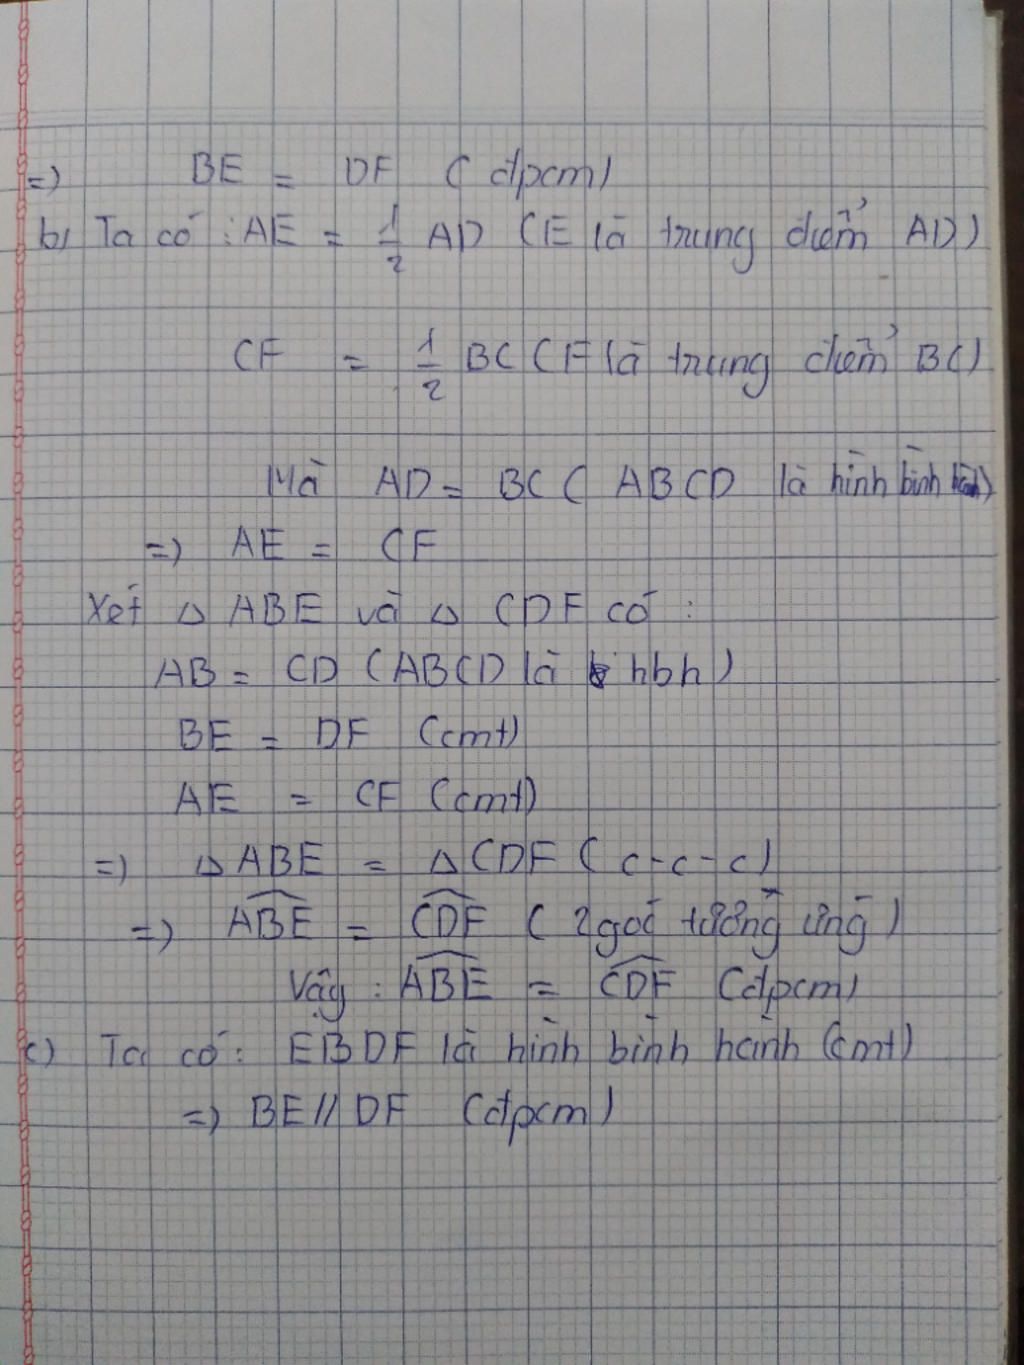 =) BE = DF (đpcm)
b) Ta có : AE = 1/2 AD (E là trung điểm AD)
CF = 1/2 BC (F là trung điểm BC)
Mà AD = BC ( ABCD là hình bình hành)
=) AE = CF
Xét △ ABE và △ CDF có :
AB = CD (ABCD là hbh)
BE = DF (cmt)
AE = CF (cmt)
=) △ ABE = △ CDF ( c - c - c)
=) \widehat{ABE} = \widehat{CDF} ( 2 góc tương ứng )
Vậy : \widehat{ABE} = \widehat{CDF} (đpcm)
c) Ta có : EBDF là hình bình hành (cmt)
=) BE // DF (đpcm)